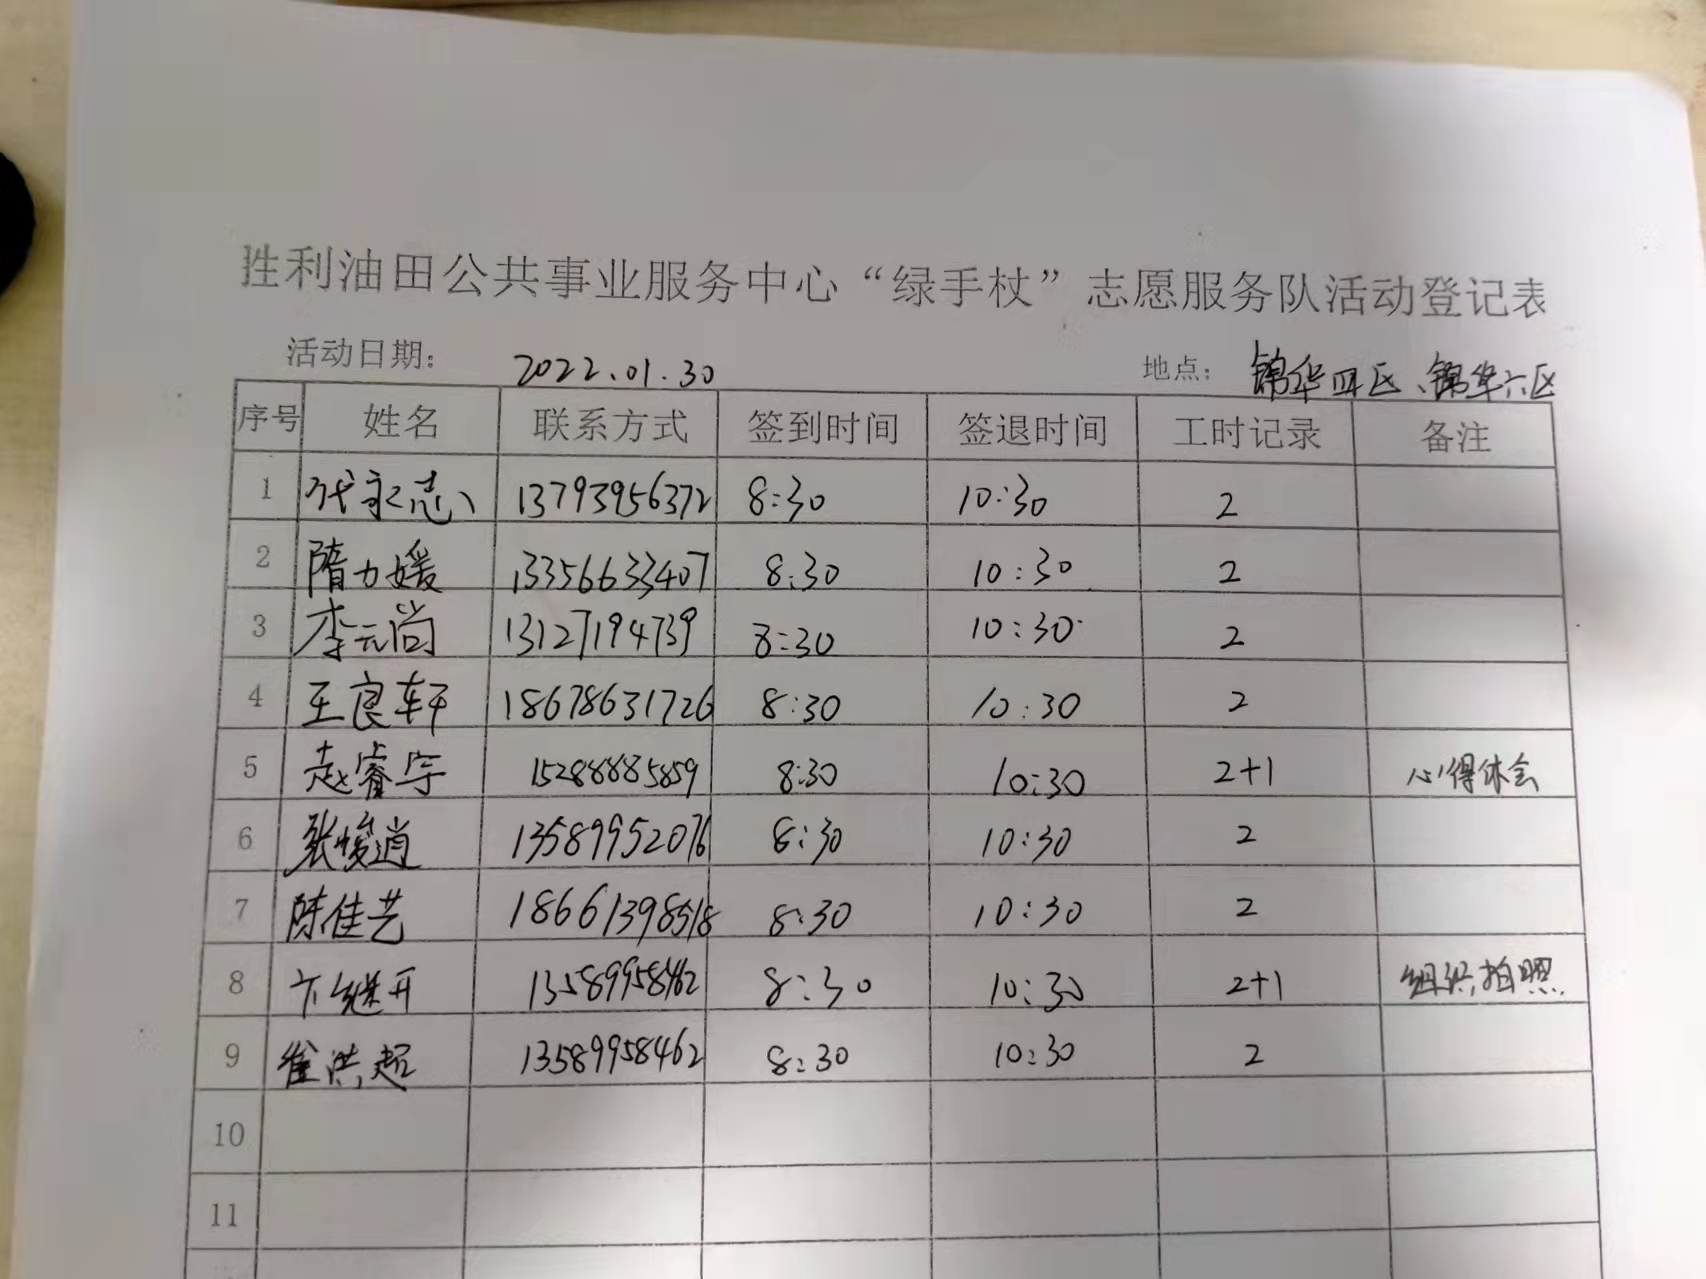 胜利油田公共事业服务中心“绿手杖”志愿服务队活动登记表
活动日期： 2022.01.30 地点： 锦华四区、锦华六区
序号 姓名 联系方式 签到时间 签退时间 工时记录 备注
1 代永志 13793956372 8:30 10:30 2
2 隋力媛 13356633407 8:30 10:30 2
3 李元尚 13127194739 8:30 10:30 2
4 王良轩 18678631726 8:30 10:30 2
5 赵睿宇 15288885859 8:30 10:30 2+1 心得体会
6 张峻逍 13589952076 8:30 10:30 2
7 陈佳艺 18661398518 8:30 10:30 2
8 卞继开 13589958462 8:30 10:30 2+1 组织拍照
9 崔洪超 13589958462 8:30 10:30 2
10
11